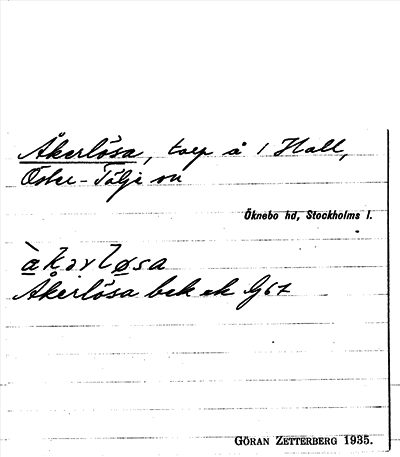 Åkerlösa, torp å 1 Hall,
Öster-Tälje sn
Öknebo hd, Stockholms l.
Åkerlösa bek ek G67
GÖRAN ZETTERBERG 1935.